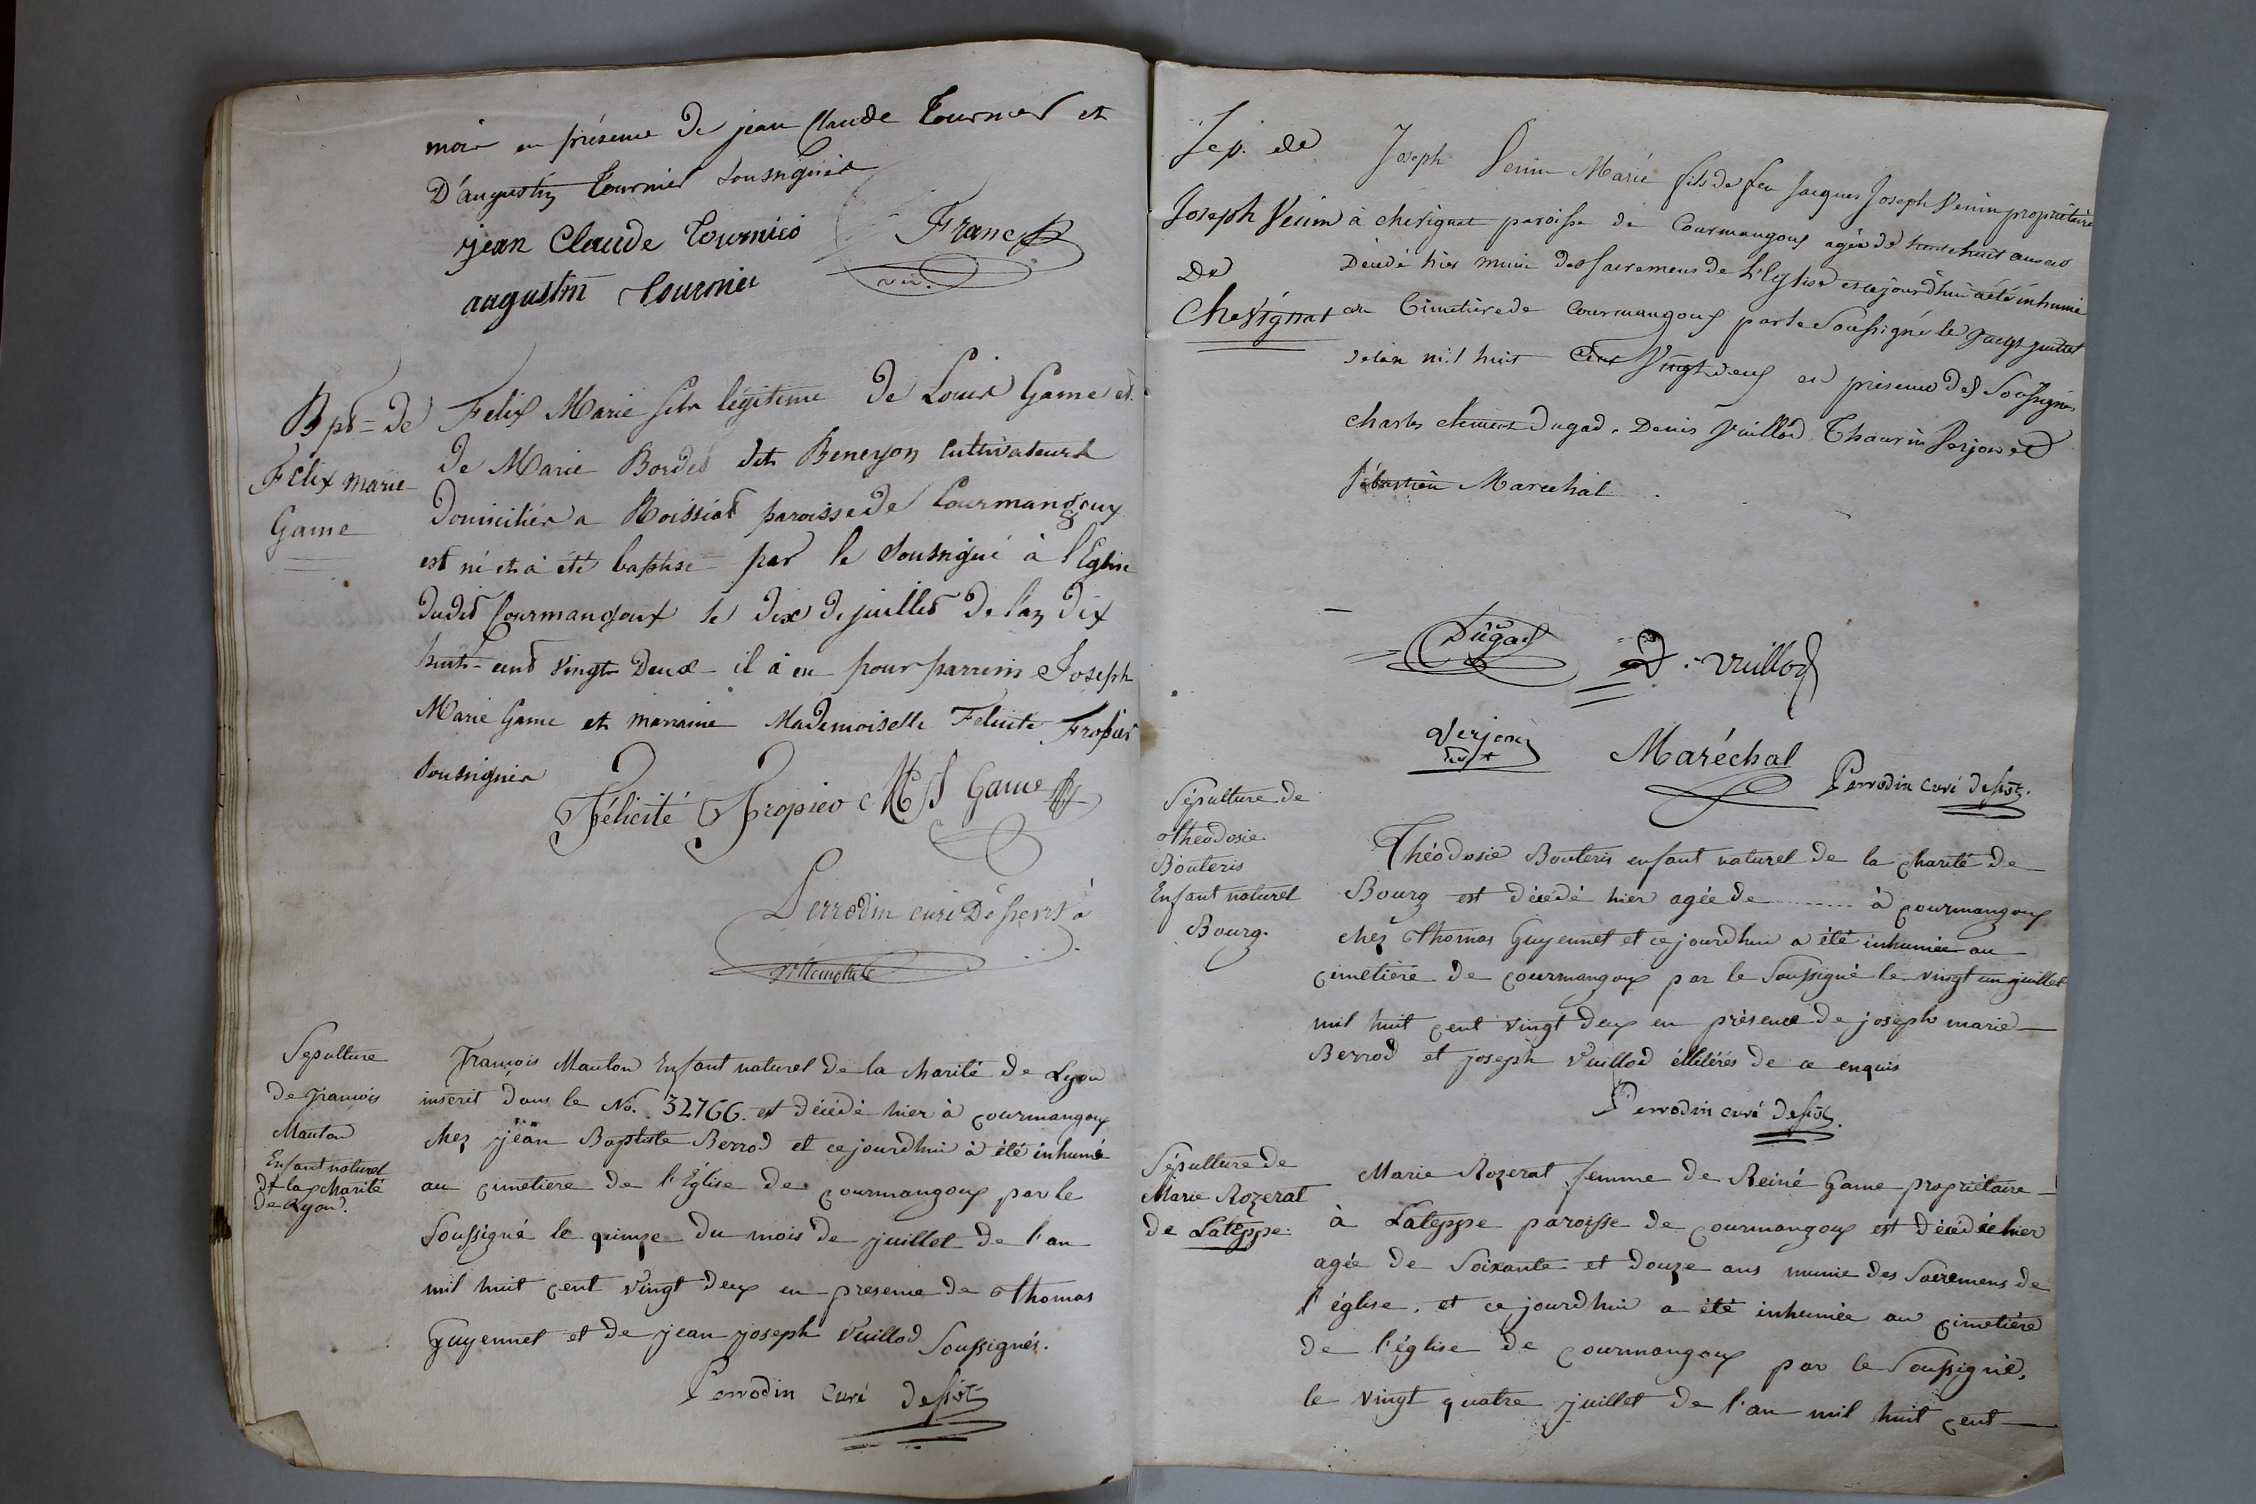 mois en présence de jean Claude Tournier et
D'augustin Tournier soussignés
jean Claude Tournier
Franc
vic.
augustin Tournier
Bpt = de
Félix marie
Game
Felix Marie fils légitime de Louis Game et
de Marie Bordet dit Beneyon cultivateurs
domiciliés a Roissiat paroisse de Courmangoux
est né et à été baptisé par le soussigné à l'Eglise
dudit Courmangoux le dix de juillet de l'an dix
huit-cent vingt Deux il à eu pour parrein Joseph
Marie Game et marraine Mademoiselle Félicité Fropier
soussignés
Félicité Fropier MJ Game
Perrodin curé Dessert à
Sépulture
de françois
Manton
Enfant naturel
de la charité
de Lyon.
François Manton Enfant naturel de la charité de Lyon
inscrit dans le No. 32766. est décédé hier à courmangoux
chez jean Baptiste Berrod et ce jourdhui à été inhumé
au cimetiere de l'Église de courmangoux par le
Soussigné le quinze du mois de juillet de l'an
mil huit cent vingt deux en presence de Thomas
Guyennet et de jean joseph Vuillod Soussignés.
Perrodin curé dessert
Sep. de
Joseph Venin
De
Chevignat
Joseph Venin Marié fils de feu Jacques Joseph Venin propriétaire
à chevignat paroisse de Courmangoux agée de trente huit ans est
Décédé hier muni des sacremens de l'Eglise et ce jourdhui a été inhumé
au Cimetiere de Courmangoux par le Soussigné le juillet
de l'an mil huit Cent Vingt deux en présence des Soussignés
charles clement Dugad, Denis Vuillod, Thaurin Perjon et
Sébastien Marechal
Dugad
D. Vuillod
Verjon
Maréchal
Perrodin curé dessert.
Sépulture de
Theodosie
Bouteris
Enfant naturel
Bourg.
Théodosie Bouteris enfant naturel de la charité de
Bourg est décédé hier agée de ......... à courmangoux
chez Thomas Guyennet et ce jourdhui a été inhumée au
cimetière de courmangoux par le Soussigné le vingt un juillet
mil huit cent vingt deux en présence de joseph marie
Berrod et joseph Vuillod éllitérés de ce enquis
Perrodin curé dessert.
Sépulture de
Marie Rozerat
de Lateppe.
Marie Rozerat femme de Reiné Game propriétaire
à Lateppe paroisse de courmangoux est décédée hier
agée de Soixante et douze ans munie des Sacremens de
l'église, et ce jourdhui a été inhumée au cimetière
de l'église de courmangoux par le Soussigné,
le vingt quatre juillet de l'an mil huit cent